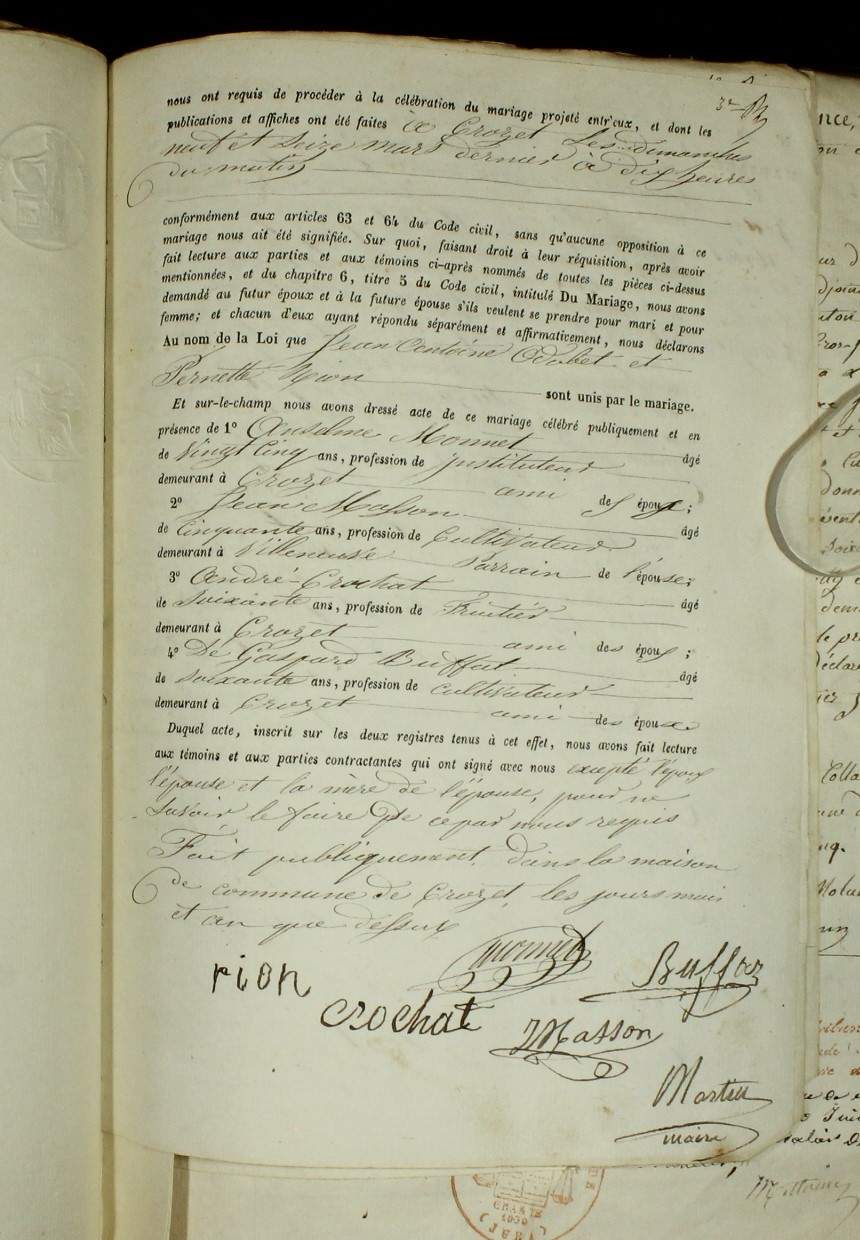 nous ont requis de procéder à la célébration du mariage projeté entr'eux, et dont les
publications et affiches ont été faites à Crozet Les dimanches
neuf et Seize mars dernier à dix heures
du matin
conformément aux articles 63 et 64 du Code civil, sans qu'aucune opposition à ce
mariage nous ait été signifiée. Sur quoi, faisant droit à leur réquisition, après avoir
fait lecture aux parties et aux témoins ci-après nommés de toutes les pièces ci-dessus
mentionnées, et du chapitre 6, titre 5 du Code civil, intitulé Du Mariage, nous avons
demandé au futur époux et à la future épouse s'ils veulent se prendre pour mari et pour
femme; et chacun d'eux ayant répondu séparément et affirmativement, nous déclarons
Au nom de la Loi que Jean Antoine Odobet et
Pernette Rion
sont unis par le mariage.
Et sur-le-champ nous avons dressé acte de ce mariage célébré publiquement et en
présence de 1º Anselme Monnet
de Vingt Cinq ans, profession de Instituteur âgé
demeurant à Crozet ami des époux;
2º Jean Masson
de Cinquante ans, profession de Cultivateur âgé
demeurant à Villeneuve Parrain de l'épouse;
3º André Crochat
de Soixante ans, profession de Fruitier âgé
demeurant à Crozet ami des époux;
4º De Gaspard Buffat
de soixante ans, profession de cultivateur âgé
demeurant à Crozet ami des époux
Duquel acte, inscrit sur les deux registres tenus à cet effet, nous avons fait lecture
aux témoins et aux parties contractantes qui ont signé avec nous excepté l'époux
l'épouse et la mère de l'épouse, pour ne
savoir le faire De ce par nous requis
Fait publiquement, dans la maison
de commune de Crozet, les jours mois
et an que dessus
rion
Monnet
Buffaz
crochat
JMasson
Martin
maire